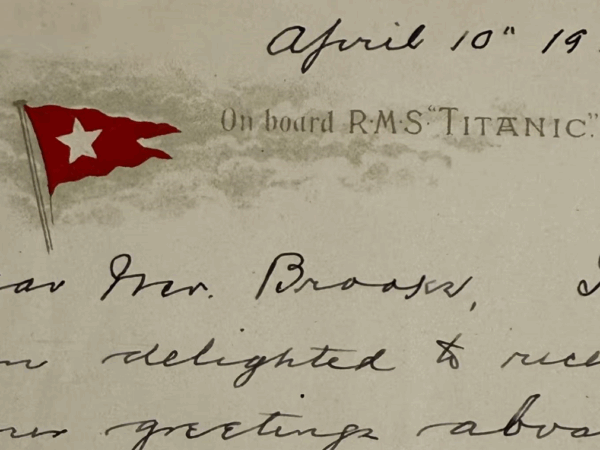 April 10" 19
On board R·M·S· "TITANIC".
ar Mr. Brooks,
delighted to rece
greetings aboa